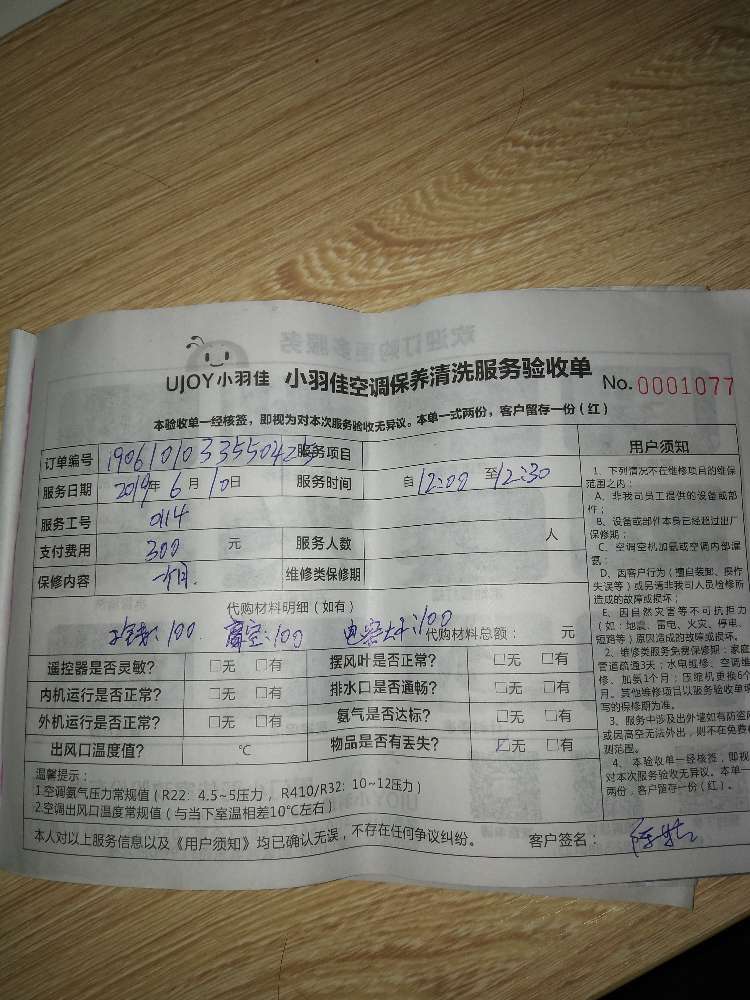 UJOY小羽佳 小羽佳空调保养清洗服务验收单 No.0001077
本验收单一经核签，即视为对本次服务验收无异议。本单一式两份，客户留存一份（红）
订单编号 服务项目
服务日期 2019年 6月 10日 服务时间 自12:00 至12:30
服务工号 0114
支付费用 300 元 服务人数 人
保修内容 一个月 维修类保修期
代购材料明细（如有）
:100 高空:100 电容大子:100 代购材料总额： 元
遥控器是否灵敏? □无 □有 摆风叶是否正常? □无 □有
内机运行是否正常? □无 □有 排水口是否通畅? □无 □有
外机运行是否正常? □无 □有 氨气是否达标? □无 □有
出风口温度值? ℃ 物品是否有丢失? ☑无 □有
温馨提示：
1.空调氨气压力常规值（R22：4.5~5压力，R410/R32：10~12压力）
2.空调出风口温度常规值（与当下室温相差10℃左右）
本人对以上服务信息以及《用户须知》均已确认无误，不存在任何争议纠纷。 客户签名：
用户须知
1、下列情况不在维修项目的维保
范围之内：
A、非我司员工提供的设备或部
件；
B、设备或部件本身已经超过出厂
保修期；
C、空调空机加氨或空调内部漏
氨；
D、因客户行为（擅自装卸、操作
失误等）或另请非我司人员检修所
造成的故障或损坏；
E、因自然灾害等不可抗拒力
（如：地震、雷电、火灾、停电、
短路等）原因造成的故障或损坏。
2、维修类服务免费保修期：家庭
管道疏通3天；水电维修、空调维
修、加氨1个月；压缩机更换6个
月。其他维修项目以服务验收单填
写的保修期为准。
3、服务中涉及出外墙如有防盗网
或因高空无法外出，则不在免费检
测范围。
4、本验收单一经核签，即视
对本次服务验收无异议。本单一
两份，客户留存一份（红）。